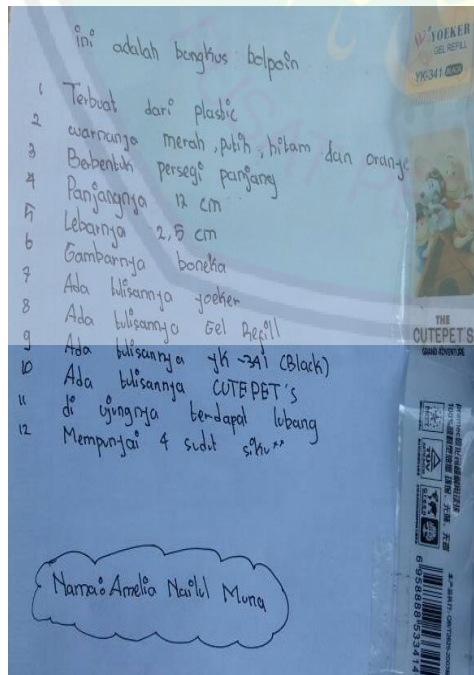 ini adalah bengkus bolpoin
1 Terbuat dari plastic
2 warnanya merah, putih, hitam dan orange
3 Berbentuk persegi panjang
4 Panjangnya 12 cm
5 Lebarnya 2,5 cm
6 Gambarnya boneka
7 Ada tulisannya yoeker
8 Ada tulisannya Gel Refill
9 Ada tulisannya yk-341 (Black)
10 Ada tulisannya CUTEPET'S
11 di ujungnya terdapat lubang
12 Mempunyai 4 sudut siku"
Nama: Amelia Nailul Muna
YOEKER
GEL REFILL
YK-341 BLACK
THE
CUTEPET'S
GRAND ADVENTURE
6 958888 533414